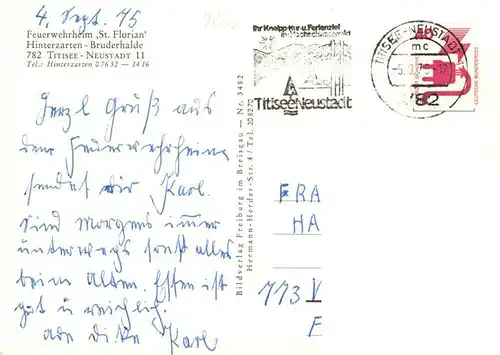 4. Sept. 75
Feuerwehrheim ‚St. Florian'
Hinterzarten - Bruderhalde
782 TITISEE - NEUSTADT 11
Tel.: Hinterzarten 07652 — 1416
Herzl Gruß aus
dem Feuerwehrheim
sendet dir Karl.
Sind morgens immer
unterwegs sonst alles
beim Alten. Essen ist
gut u reichlich.
Karl
Bildverlag Freiburg im Breisgau — Nr. 3482
Hermann-Herder-Str. 4 / Tel. 208270
Ihr Kneippkur u. Ferienziel
im Hochschwarzwald
Titisee Neustadt
TITISEE-NEUSTADT
mc
782
DEUTSCHE BUNDESPOST
FRA
HA
773 V
F